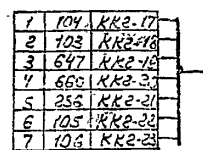 1 104 KK2-17
2 103 KK2-18
3 647 KK2-19
4 660 KK2-20
5 236 KK2-21
6 105 KK2-22
7 106 KK2-23